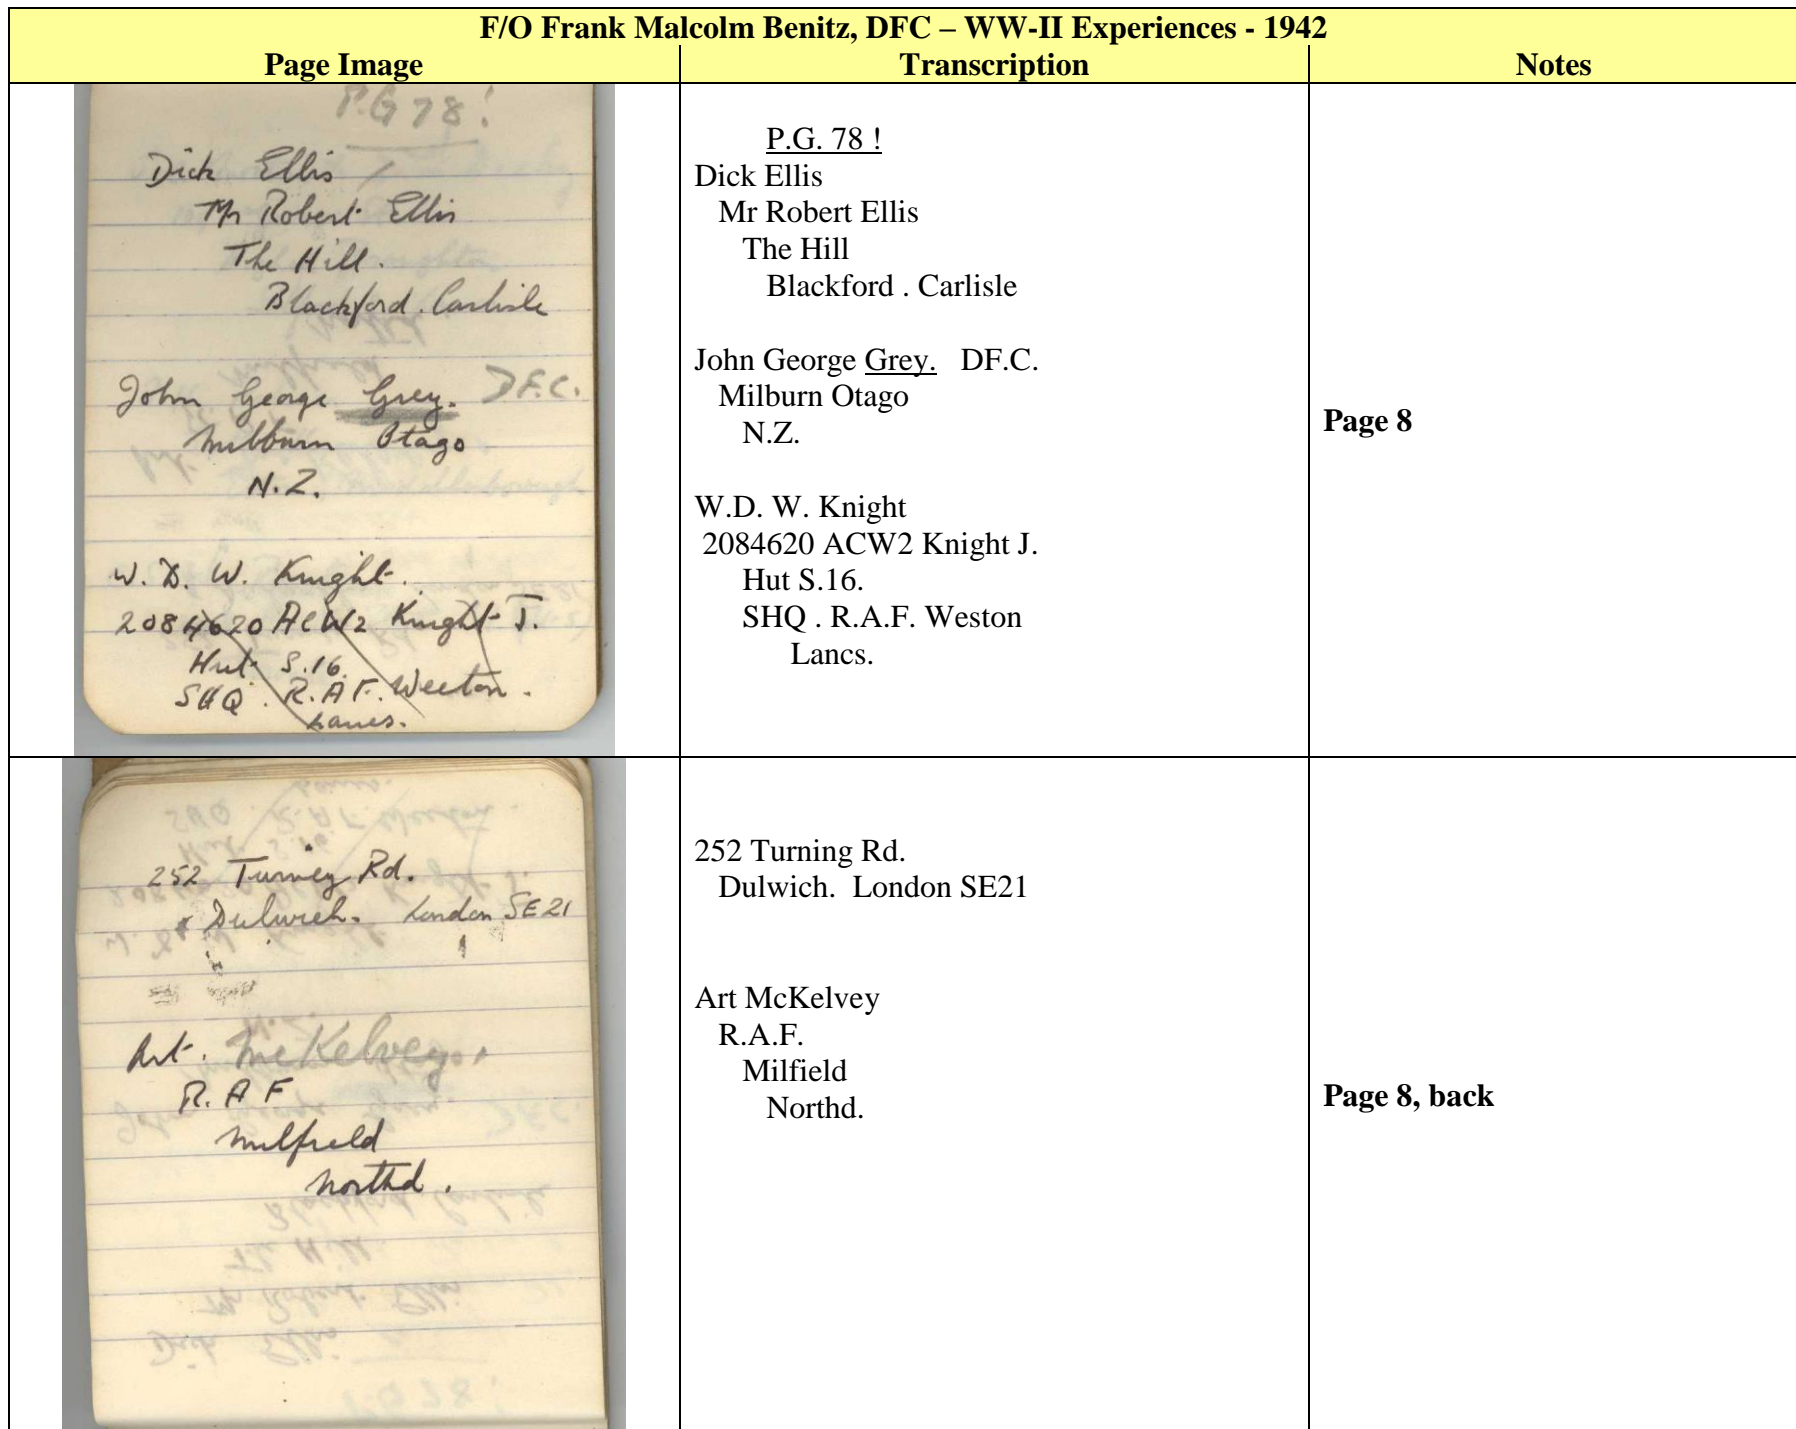 F/O Frank Malcolm Benitz, DFC – WW-II Experiences - 1942
Page Image
Transcription
Notes
P.G 78!
Dick Ellis
Mr Robert Ellis
The Hill.
Blackford. Carlisle
John George Grey. DF.C.
Milburn Otago
N.Z.
W. D. W. Knight.
2084620 ACW2 Knight J.
Hut S.16.
SHQ. R.A.F. Weeton.
Lancs.
P.G. 78 !
Dick Ellis
Mr Robert Ellis
The Hill
Blackford . Carlisle
John George Grey. DF.C.
Milburn Otago
N.Z.
W.D. W. Knight
2084620 ACW2 Knight J.
Hut S.16.
SHQ . R.A.F. Weston
Lancs.
Page 8
252 Turney Rd.
Dulwich. London SE21
Art. McKelvey.
R. A F
Milfield
Northd.
252 Turning Rd.
Dulwich. London SE21
Art McKelvey
R.A.F.
Milfield
Northd.
Page 8, back